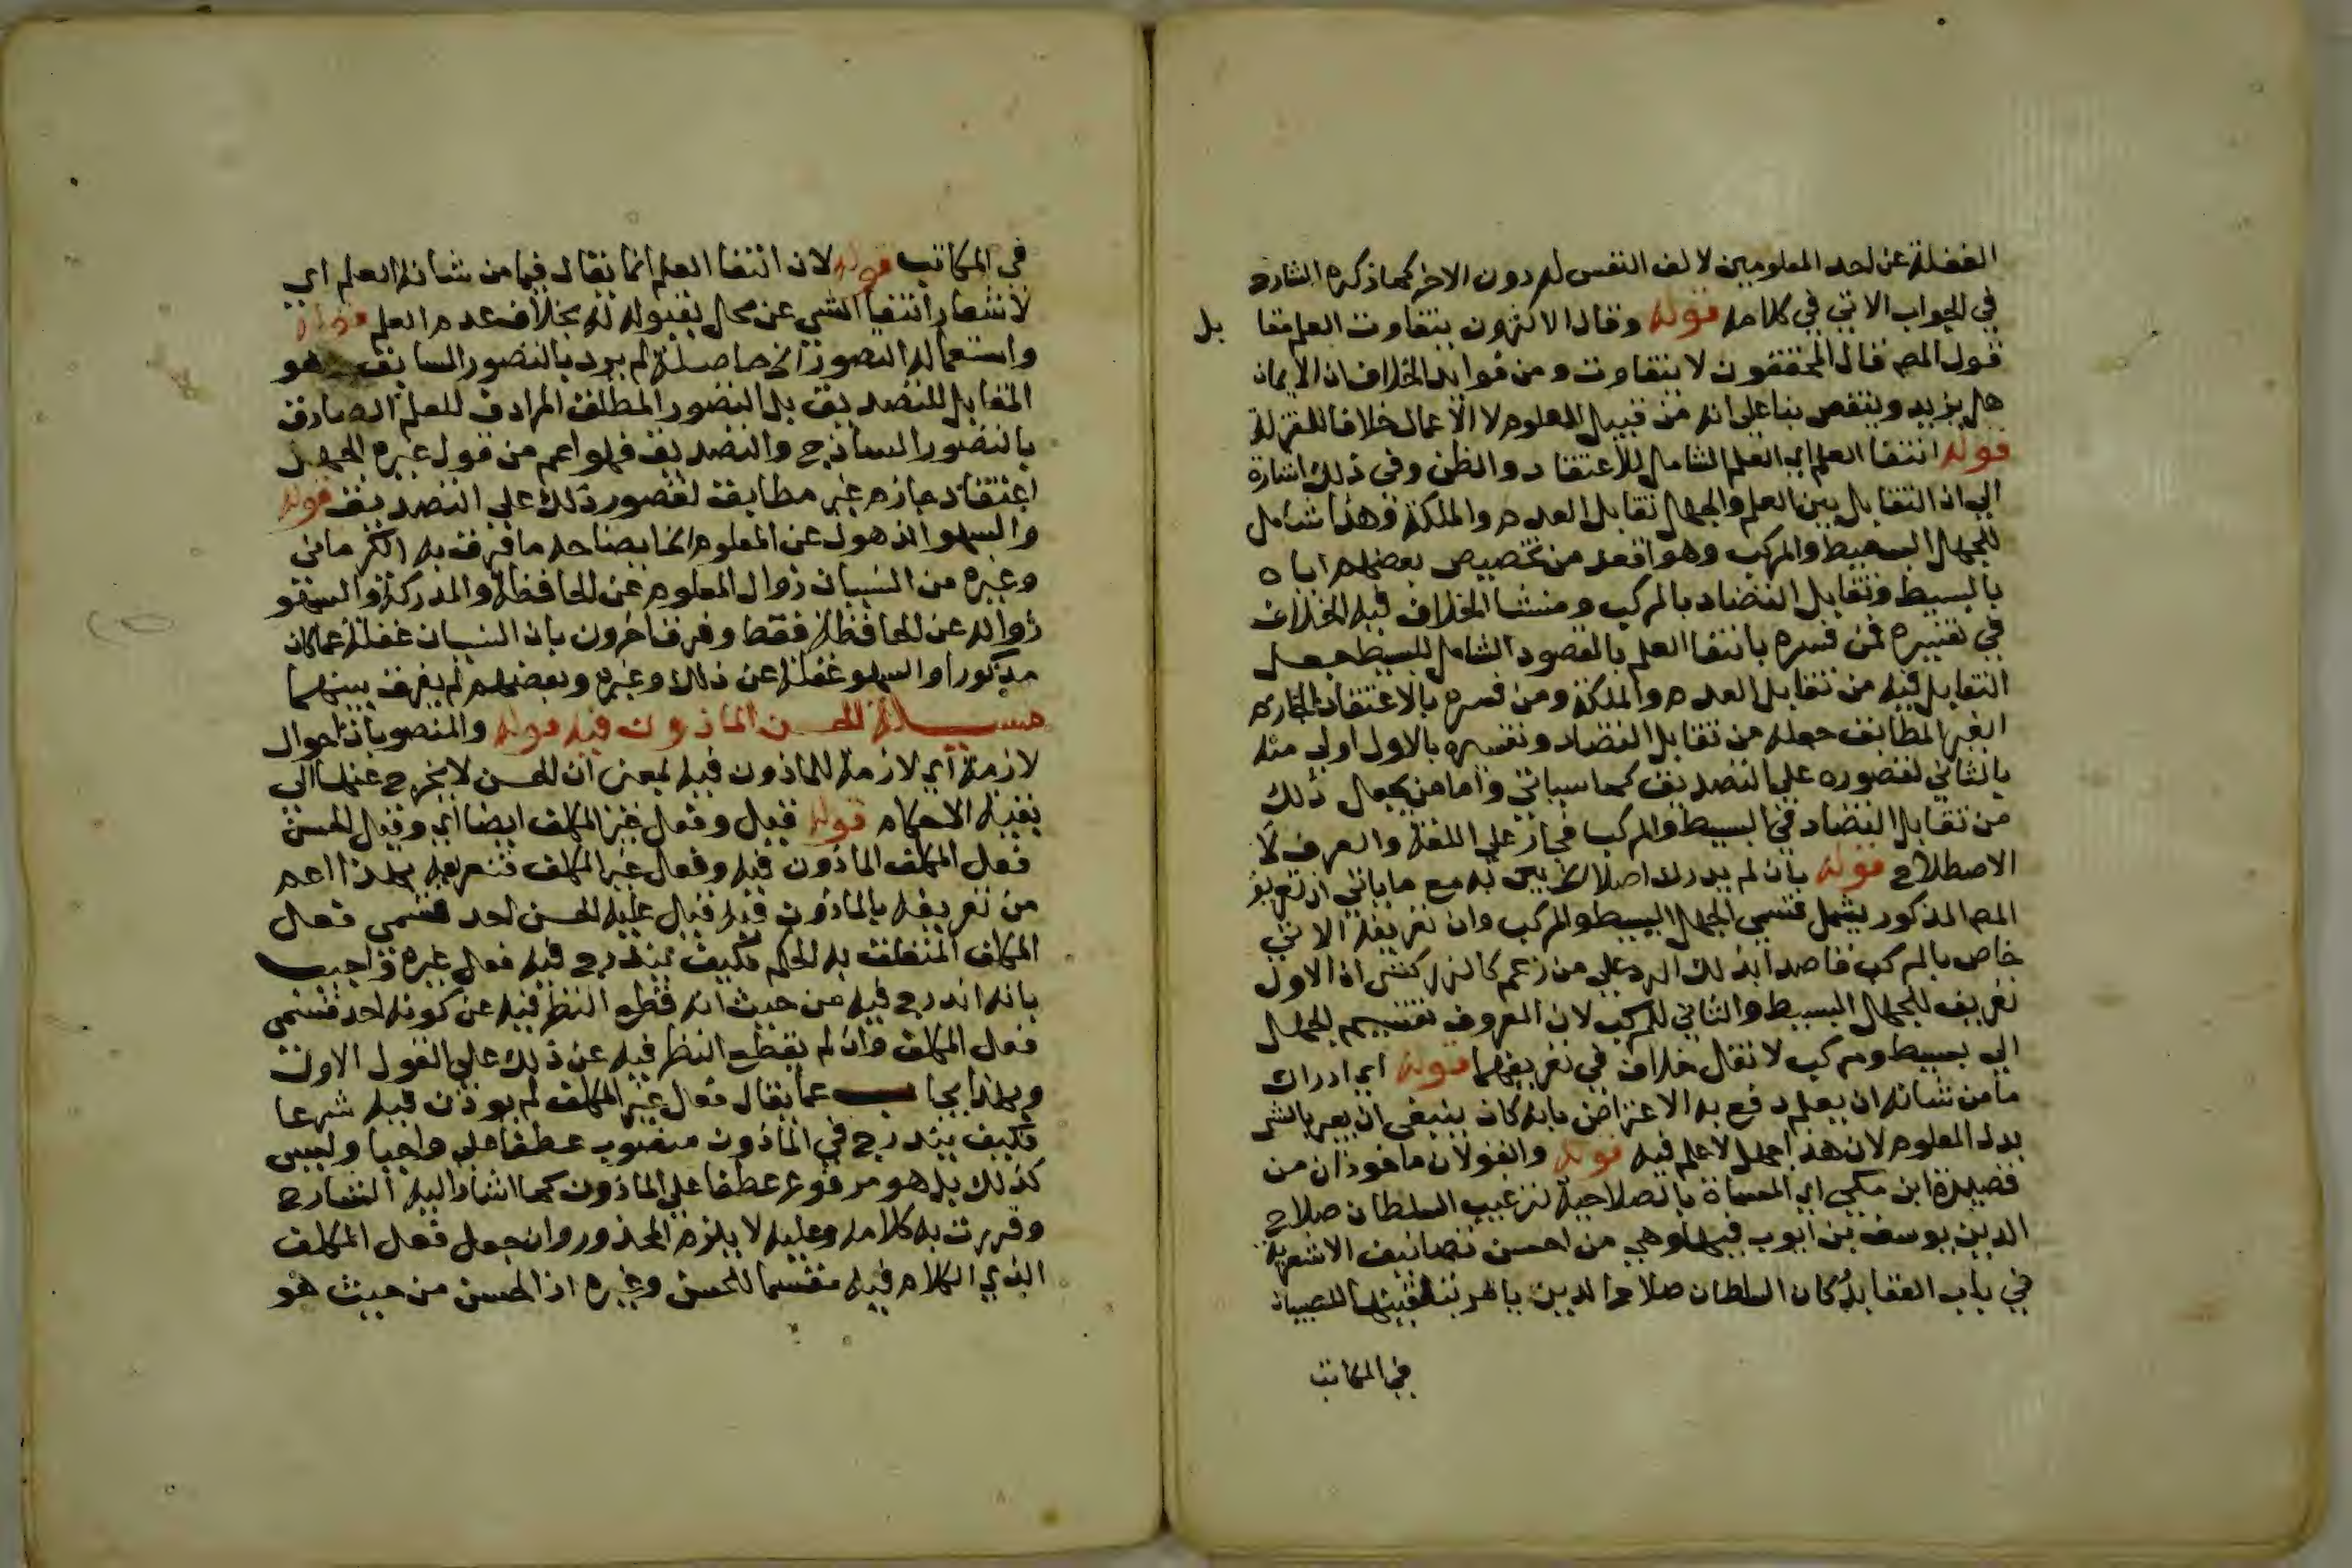 الغفلة عن احد المعلومين لالف النفس له دون الاخر كما ذكره الشارح
في الجواب الاتي في كلامه قوله وقال الاكثرون يتفاوت العلم مقابل
قول المص قال المحققون لا يتفاوت ومن فوايد الخلاف ان الايمان
هل يزيد وينقص بناعلى انه من قبيل العلوم لا الاعمال خلافا للمعتزلة
قوله انتفا العلم اي العلم الشامل للاعتقاد والظن وفي ذلك اشارة
الي ان التقابل بين العلم والجهل تقابل العدم والملكة وهذا شامل
للجهل البسيط والمركب وهو اقعد من تخصيص بعضهم اياه
بالبسيط وتقابل التضاد بالمركب ومنشا الخلاف فيه الخلاف
في تفسيره فمن فسره بانتفا العلم بالمقصود الشامل للبسيط جعل
التقابل فيه من تقابل العدم والملكة ومن فسره بالاعتقاد الجازم
الغير المطابق جعله من تقابل التضاد وتفسيره بالاول اولي منه
بالثاني لقصوره علي التصديق كما سياتي واما من يجعل ذلك
من تقابل التضاد في البسيط والمركب فجاز علي اللغة والعرف لا
الاصطلاح قوله بان لم يدرك اصلا الخ بين به مع ماياتي ان تعريف
المص المذكور يشمل قسمي الجهل البسيط والمركب وان تعريفه الاتي
خاص بالمركب قاصدا بذلك الرد علي من زعم كالزركشي ان الاول
تعريف للجهل البسيط والثاني للمركب لان المعروف تقسيم الجهل
الي بسيط ومركب لا نقل خلاف في تعريفهما قوله اي ادراك
مامن شانه ان يعلم دفع به الاعتراض بانه كان ينبغي ان يعبر بالشي
بدل المعلوم لان هذا جهل لا علم فيه قوله والقولان ماخوذان من
قصيدة ابن مكي اي المسماة بالصلاحية لترغيب السلطان صلاح
الدين يوسف بن ايوب فيها وهي من احسن تصانيف الاشعرية
في باب العقايد كان السلطان صلاح الدين يامر بتلقينها للصبيان
في المكاتب
في المكاتب قوله لان انتفا العلم انما يقال فيما من شانه العلم اي
لاشعار انتفا الشي عن محل بقبوله له بخلاف عدم العلم قوله
واستعماله التصور الخ حاصله لم يرد بالتصور السابق هو
المقابل للتصديق بل التصور المطلق المرادف للعلم الصادق
بالتصور الساذج والتصديق فهو اعم من قول غيره الجهل
اعتقاد جازم غير مطابق لقصور ذلك علي التصديق قوله
والسهو الذهول عن المعلوم الخ ايضاحه مافرق به الكرماني
وغيره من النسيان زوال المعلوم عن الحافظة والمدركة والسهو
زواله عن الحافظة فقط وفرق اخرون بان النسيان غفلة عما كان
مذكورا والسهو غفلة عن ذلك وغيره وبعضهم لم يفرق بينهما
مسيلة الحسن الماذون فيه قوله والمنصوبات احوال
لازمة اي لازمة للماذون فيه بمعني ان الحسن لا يخرج عنها الي
بقية الاحكام قوله قيل وفعل غير المكلف ايضا اي وقيل الحسن
فعل المكلف الماذون فيه وفعل غير المكلف فتعريفه بهذا اعم
من تعريفه بالماذون فيه قيل عليه الحسن احد قسمي فعل
المكلف المتعلق به الحكم فكيف يندرج فيه فعل غيره واجيب
بانه اندرج فيه من حيث انه قطع النظر فيه عن كونه احد قسمي
فعل المكلف وان لم يقطع النظر فيه عن ذلك علي القول الاول
وبهذا يجاب عما يقال فعل غير المكلف لم يوذن فيه شرعا
فكيف يندرج في الماذون منصوب عطفا علي واجبا وليس
كذلك بل هو مرفوع عطفا علي الماذون كما اشار اليه الشارح
وقررت به كلامه وعليه لا يلزم المحذور وان جعل فعل المكلف
الذي الكلام فيه مقسما للحسن وغيره اذ الحسن من حيث هو